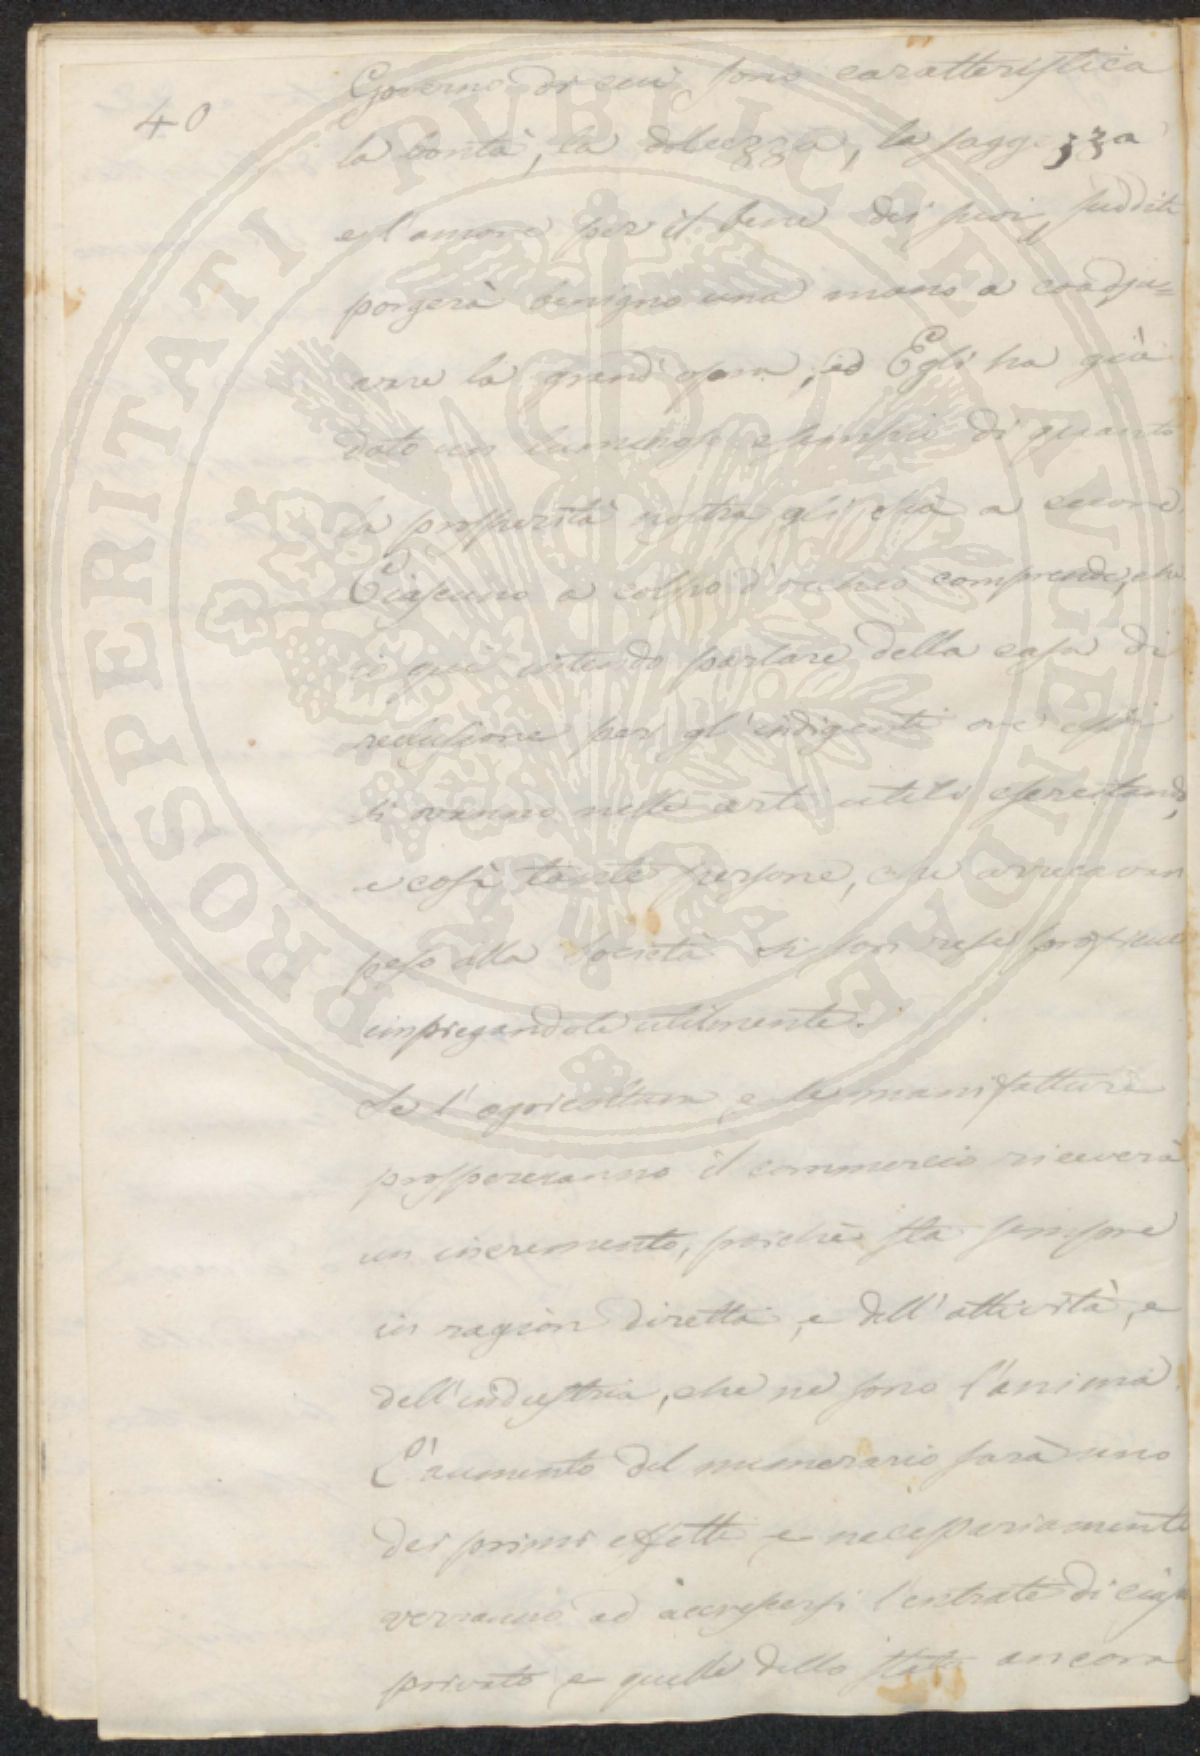 40
Governo di cui sono caratteristica
la bontà, la dolcezza, la saggezza
e l'amore per il bene dei suoi sudditi
porgerà benigno una mano a coadju=
vare la grand'opra, ed Egli ha già
dato un luminoso esempio di quanto
la prosperità nostra gli stia a cuore.
Ciascuno a colpo d'occhio comprende, che
io qui intendo parlare della casa di
reclusione per gl'indigenti ove essi
si vanno nelle arti utili esercitando,
e così tante persone, che arrecavan
peso alla società si son rese proficue
impiegandole utilmente.
Se l'agricoltura e le manifatture
prospereranno il commercio riceverà
un incremento, poichè sta sempre
in ragion diretta, e dell'attività, e
dell'industria, che ne sono l'anima.
L'aumento del numerario sarà uno
dei primi effetti e necessariamente
verranno ad accrescersi l'entrate di ciascun
privato e quelle dello stato ancora
PROSPERITATI PUBLICAE AUGENDAE